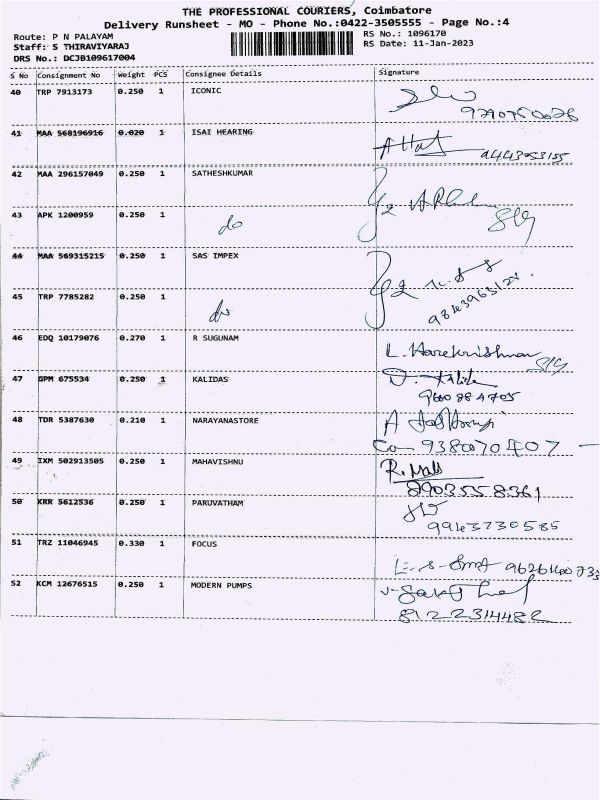 THE PROFESSIONAL COURIERS, Coimbatore
Delivery Runsheet - MO - Phone No.:0422-3505555 - Page No.:4
Route: P N PALAYAM
RS No.: 1096170
Staff: S THIRAVIYARAJ
RS Date: 11-Jan-2023
DRS No.: DCJB109617004
S No Consignment No Weight PCS Consignee Details Signature
40 TRP 7913173 0.250 1 ICONIC
41 MAA 568196916 0.020 1 ISAI HEARING
42 MAA 296157049 0.250 1 SATHESHKUMAR
43 APK 1200959 0.250 1 do
44 MAA 569315215 0.250 1 SAS IMPEX
45 TRP 7785282 0.250 1 do
46 EDQ 10179076 0.270 1 R SUGUNAM
L. Harekrishnan
47 GPM 675534 0.250 1 KALIDAS
48 TDR 5387630 0.210 1 NARAYANASTORE
49 IXM 502913505 0.250 1 MAHAVISHNU
8903558361
50 KRR 5612536 0.250 1 PARUVATHAM
9943730585
51 TRZ 11046945 0.330 1 FOCUS
52 KCM 12676515 0.250 1 MODERN PUMPS
8122314482